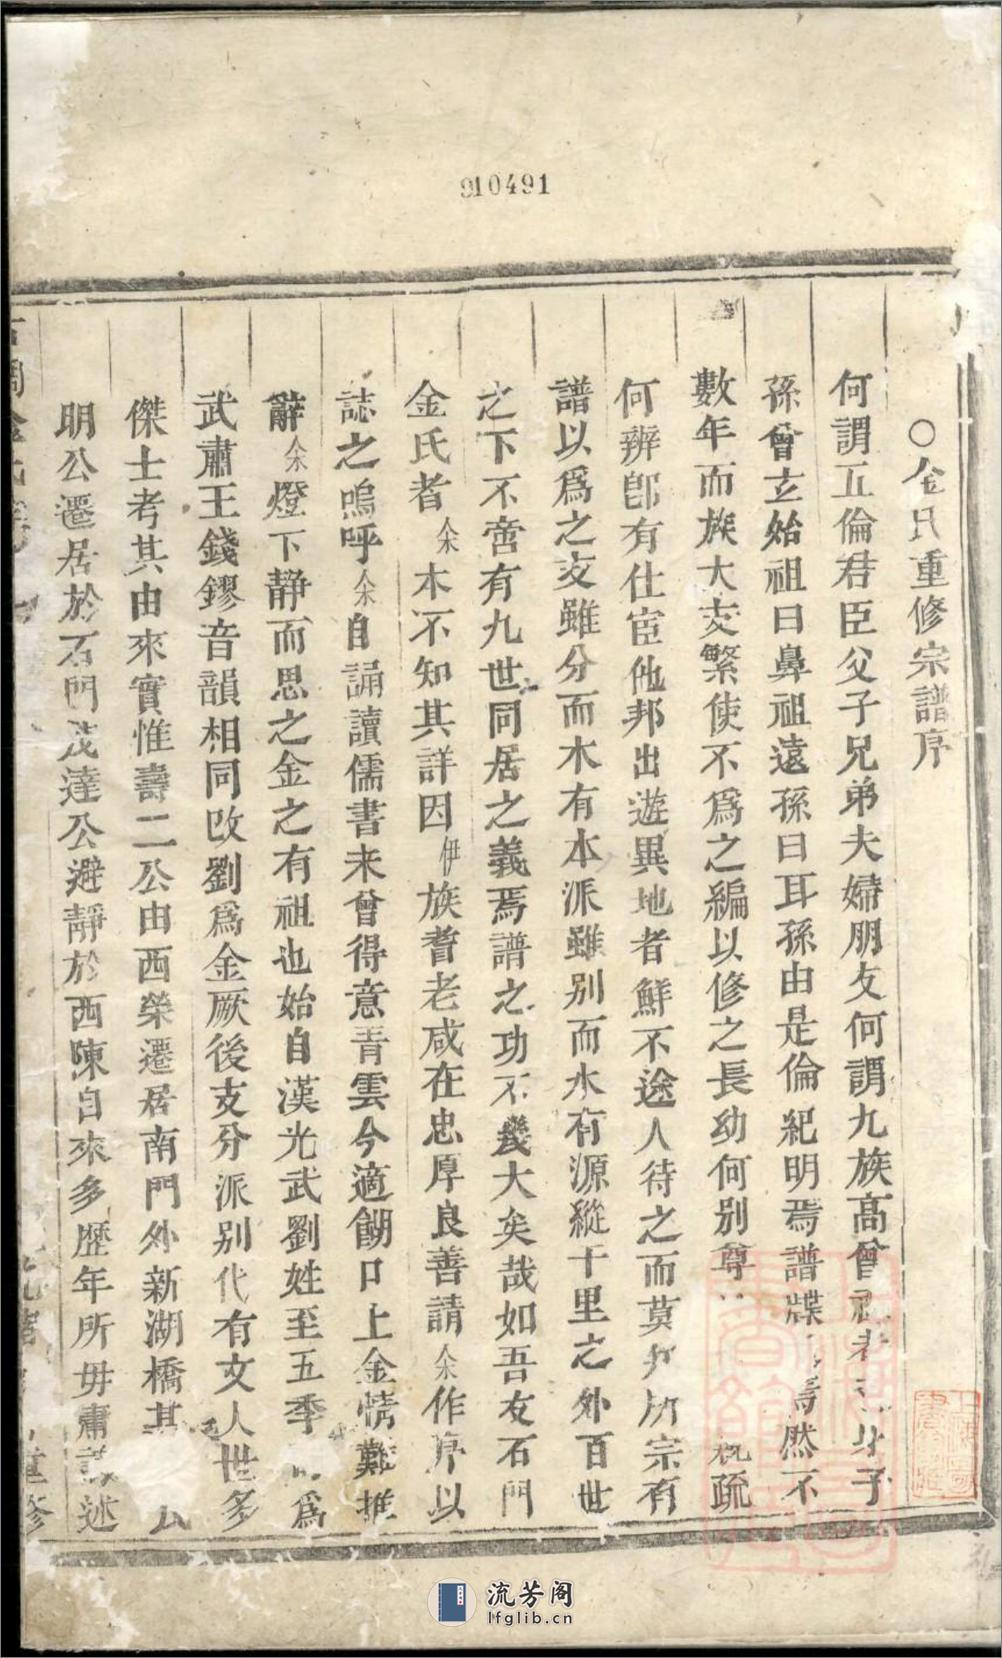 910491
○金氏重修宗譜序
何謂五倫君臣父子兄弟夫婦朋友何謂九族高曾祖考子孫
孫曾玄始祖曰鼻祖遠孫曰耳孫由是倫紀明焉譜牒焉然不
數年而族大支繁使不爲之編以修之長幼何別尊親疏
何辨卽有仕宦他邦出遊異地者鮮不途人待之而莫外宗有
譜以爲之支雖分而木有本派雖别而水有源縱千里之外百世
之下不啻有九世同居之義焉譜之功不幾大矣哉如吾友石門
金氏者余木不知其詳因伊族耆老咸在忠厚良善請余作序以
誌之嗚呼余自誦讀儒書未曾得意青雲今適餬口上金情難推
辭余燈下静而思之金之有祖也始自漢光武劉姓至五季爲
武肅王錢鏐音韻相同改劉爲金厥後支分派别代有文人世多
傑士考其由來實惟壽二公由西榮遷居南門外新湖橋其公
明公遷居於石門茂達公避靜於西陳自來多歷年所毋庸議述
重修
流芳阁
lfglib.cn